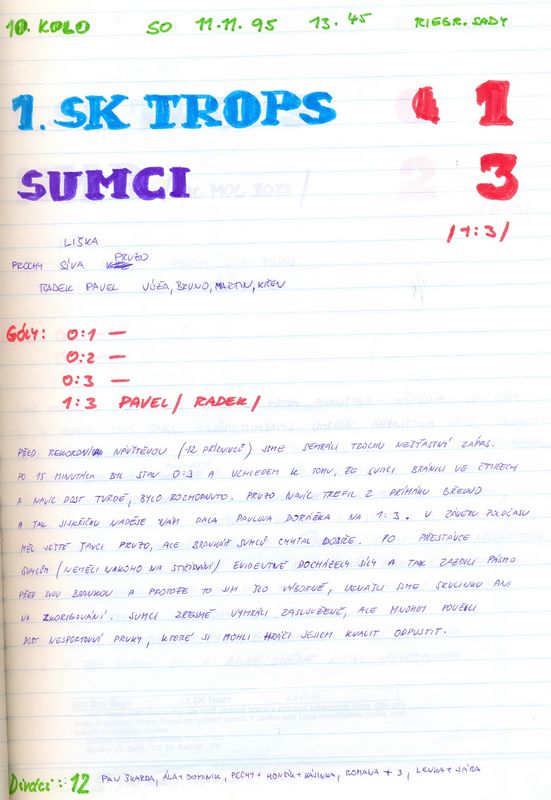 10. KOLO SO 11.11.95 13.45 RIEGR. SADY
1. SK TROPS 1
SUMCI 3
/1:3/
LIŠKA
PROCHY SÍVA PRUŽO
RADEK PAVEL VÓĎA, BRUNO, MARTIN, KŘEN
GÓLY: 0:1 —
0:2 —
0:3 —
1:3 PAVEL / RADEK /
PŘED REKORDNÍ NÁVŠTĚVOU (12 PŘÍZNIVCŮ) JSME SEHRÁLI TROCHU NEŠŤASTNÝ ZÁPAS.
PO 15 MINUTÁCH BYL STAV 0:3 A VZHLEDEM K TOMU, ŽE SUMCI BRÁNILI VE ČTYŘECH
A NAVÍC DOST TVRDĚ, BYLO ROZHODNUTO. PRUŽO NAVÍC TREFIL Z PŘÍMÁKU BŘEVNO
A TAK JISKŘIČKU NADĚJE NÁM DALA PAVLOVA DORÁŽKA NA 1:3. V ZÁVĚRU POLOČASU
MĚL JEŠTĚ ŠANCI PRUŽO, ALE BRANKÁŘ SUMCŮ CHYTAL DOBŘE. PO PŘESTÁVCE
SUMCŮM (NEMĚLI NAKOHO NA STŘÍDÁNÍ) EVIDENTNĚ DOCHÁZELY SÍLY A TAK ZAŽDILI PÁSMO
PŘED SVOU BRANKOU A PROTOŽE TO JIM ŠLO VÝBORNĚ, NENAŠLI JSME SKULINKU ANI
NA ZKORIGOVÁNÍ. SUMCI ZŘEJMĚ VYHRÁLI ZASLOUŽENĚ, ALE MNOHDY POUŽILI
DOST NESPORTOVNÍ PRVKY, KTERÉ SI MOHLI HRÁČI JEJICH KVALIT ODPUSTIT.
Diváci: 12 PAN ŠKARDA, ÁLA + DOMINIK, PECHY + HONZÍK + KAJINKA, ROMANA + 3, LENKA +